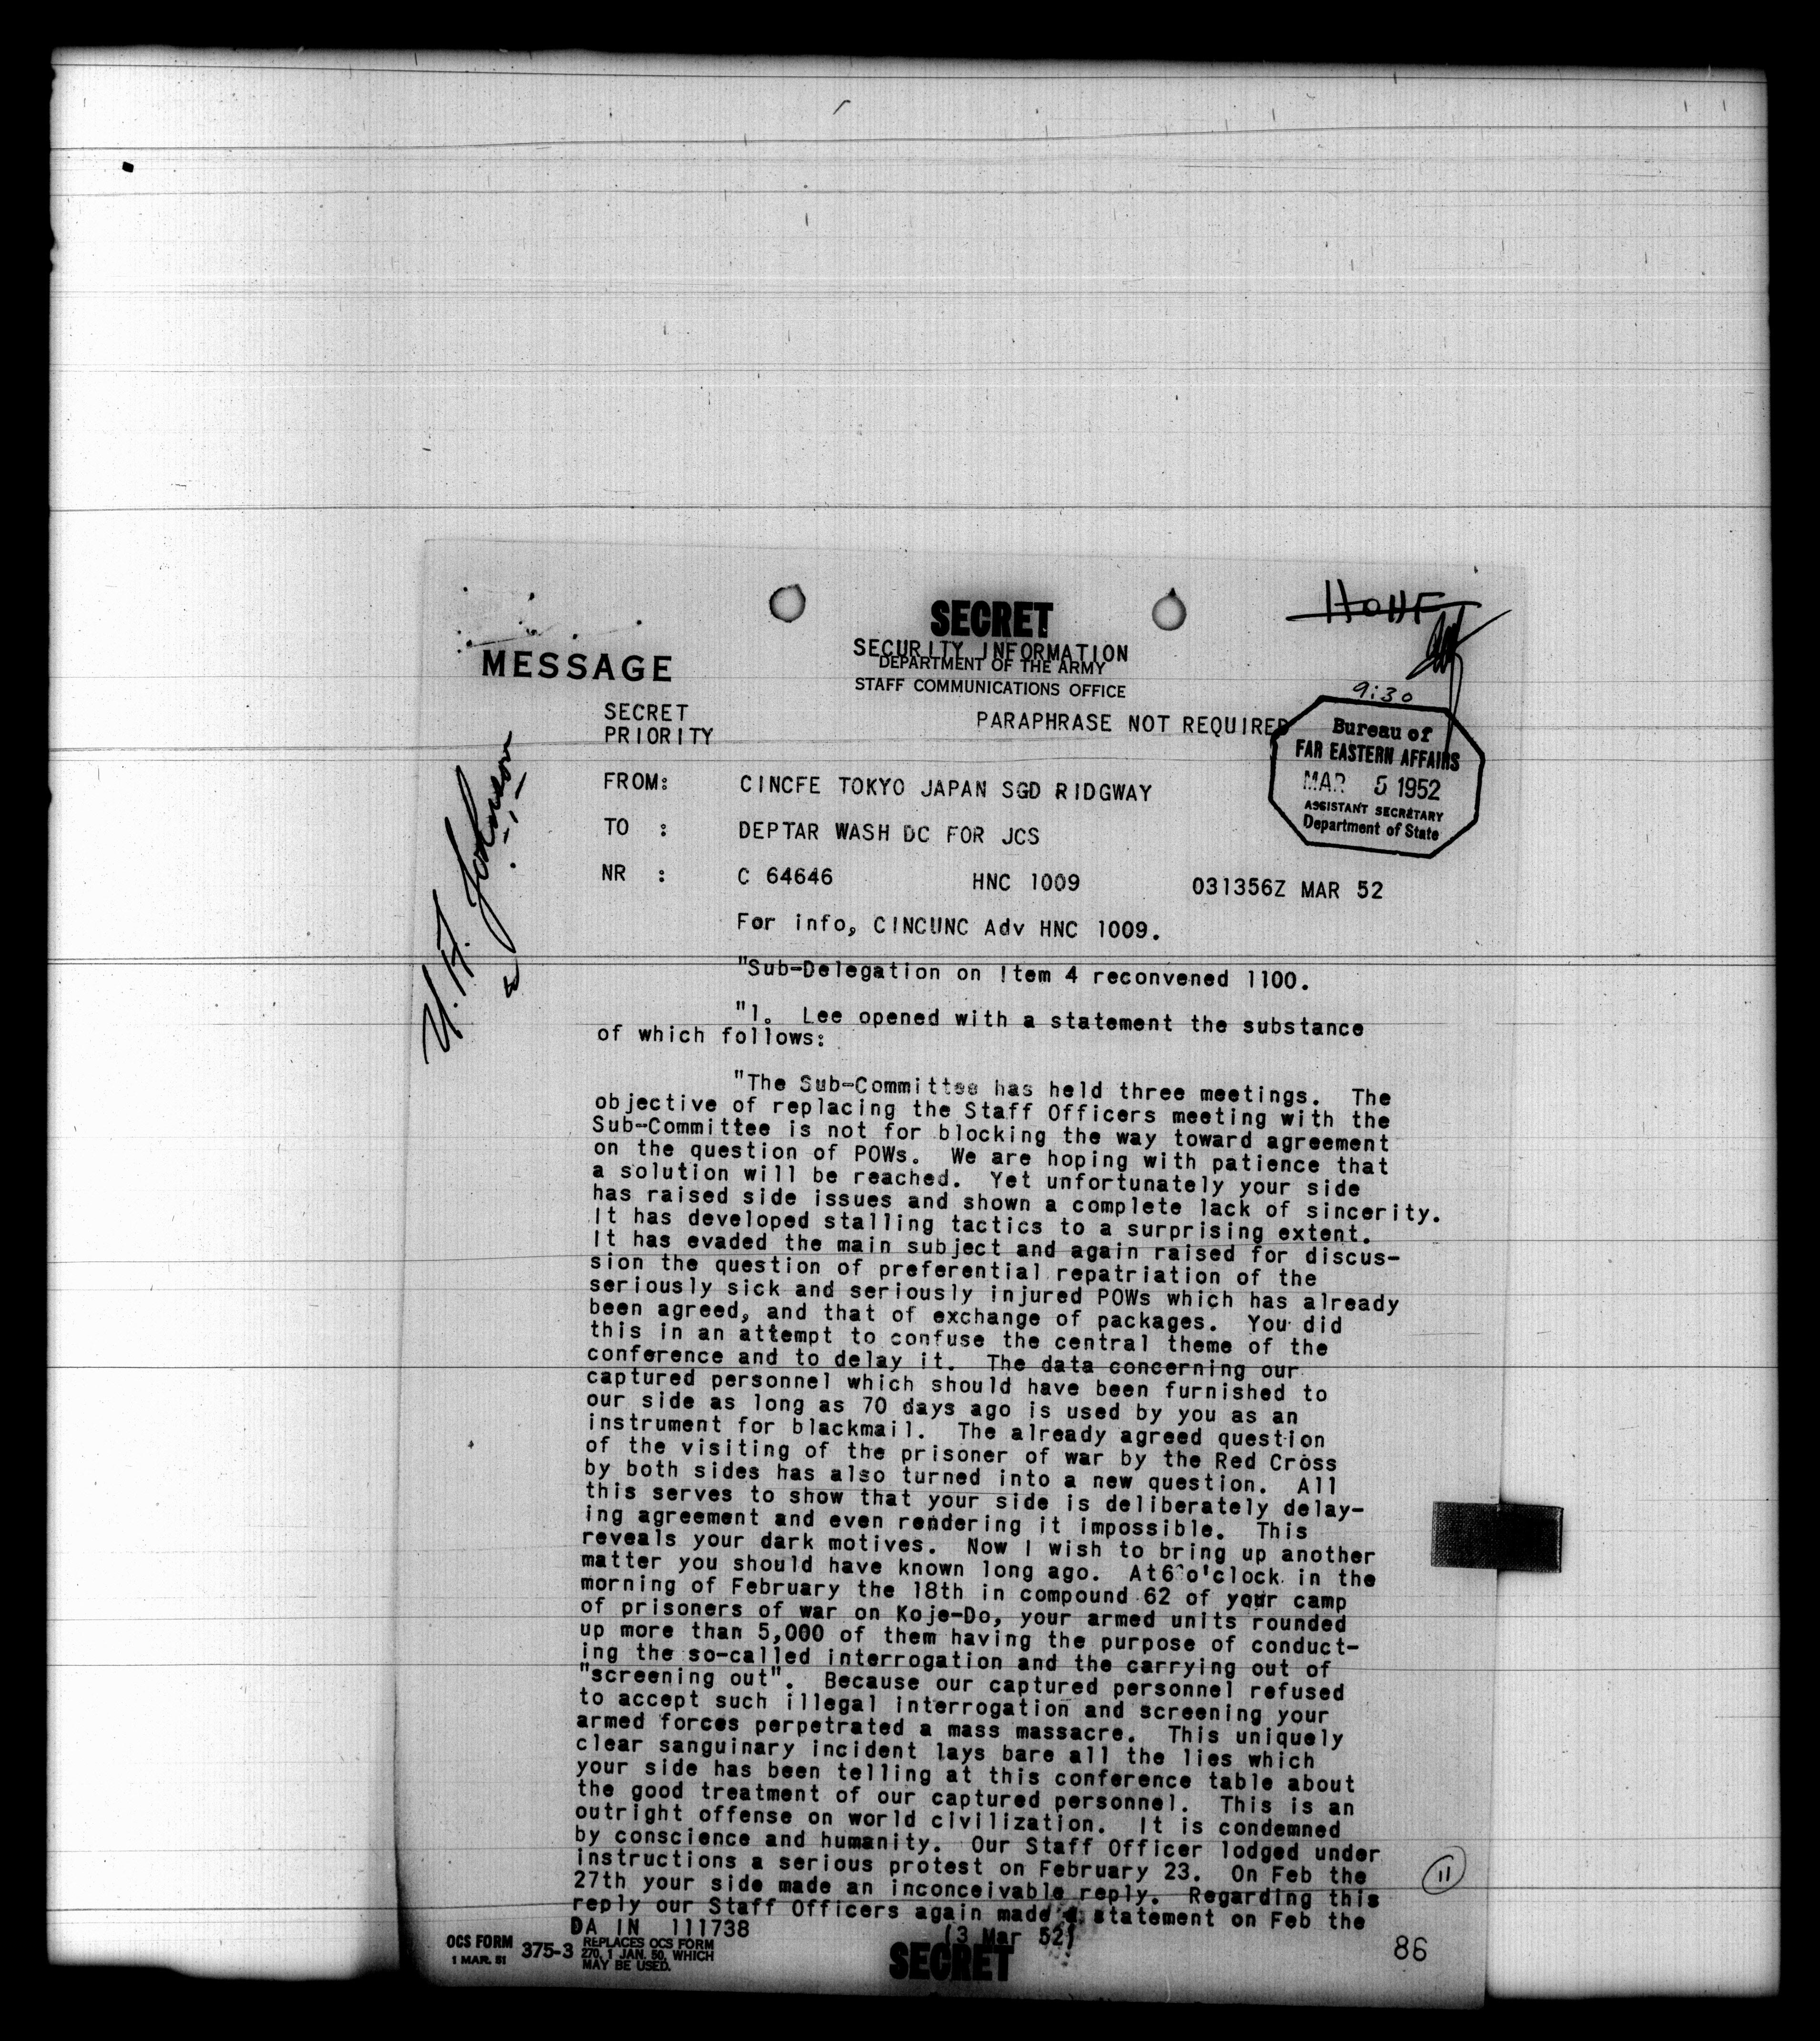 HOHF
SECRET
SECURITY INFORMATION
MESSAGE
DEPARTMENT OF THE ARMY
STAFF COMMUNICATIONS OFFICE
9:30
SECRET
PRIORITY
PARAPHRASE NOT REQUIRED
Bureau of
FAR EASTERN AFFAIRS
MAR 5 1952
ASSISTANT SECRETARY
Department of State
U. A. Johnson
FROM: CINCFE TOKYO JAPAN SGD RIDGWAY
TO : DEPTAR WASH DC FOR JCS
NR : C 64646 HNC 1009 031356Z MAR 52
For info, CINCUNC Adv HNC 1009.
"Sub-Delegation on Item 4 reconvened 1100.
"1. Lee opened with a statement the substance
of which follows:
"The Sub-Committee has held three meetings. The
objective of replacing the Staff Officers meeting with the
Sub-Committee is not for blocking the way toward agreement
on the question of POWs. We are hoping with patience that
a solution will be reached. Yet unfortunately your side
has raised side issues and shown a complete lack of sincerity.
It has developed stalling tactics to a surprising extent.
It has evaded the main subject and again raised for discus-
sion the question of preferential repatriation of the
seriously sick and seriously injured POWs which has already
been agreed, and that of exchange of packages. You did
this in an attempt to confuse the central theme of the
conference and to delay it. The data concerning our
captured personnel which should have been furnished to
our side as long as 70 days ago is used by you as an
instrument for blackmail. The already agreed question
of the visiting of the prisoner of war by the Red Cross
by both sides has also turned into a new question. All
this serves to show that your side is deliberately delay-
ing agreement and even rendering it impossible. This
reveals your dark motives. Now I wish to bring up another
matter you should have known long ago. At 6 o'clock in the
morning of February the 18th in compound 62 of your camp
of prisoners of war on Koje-Do, your armed units rounded
up more than 5,000 of them having the purpose of conduct-
ing the so-called interrogation and the carrying out of
"screening out". Because our captured personnel refused
to accept such illegal interrogation and screening your
armed forces perpetrated a mass massacre. This uniquely
clear sanguinary incident lays bare all the lies which
your side has been telling at this conference table about
the good treatment of our captured personnel. This is an
outright offense on world civilization. It is condemned
by conscience and humanity. Our Staff Officer lodged under
instructions a serious protest on February 23. On Feb the
27th your side made an inconceivable reply. Regarding this
reply our Staff Officers again made a statement on Feb the
11
DA IN 111738 (3 Mar 52)
OCS FORM 375-3 REPLACES OCS FORM
1 MAR. 51 270, 1 JAN. 50, WHICH
MAY BE USED.
SECRET
86